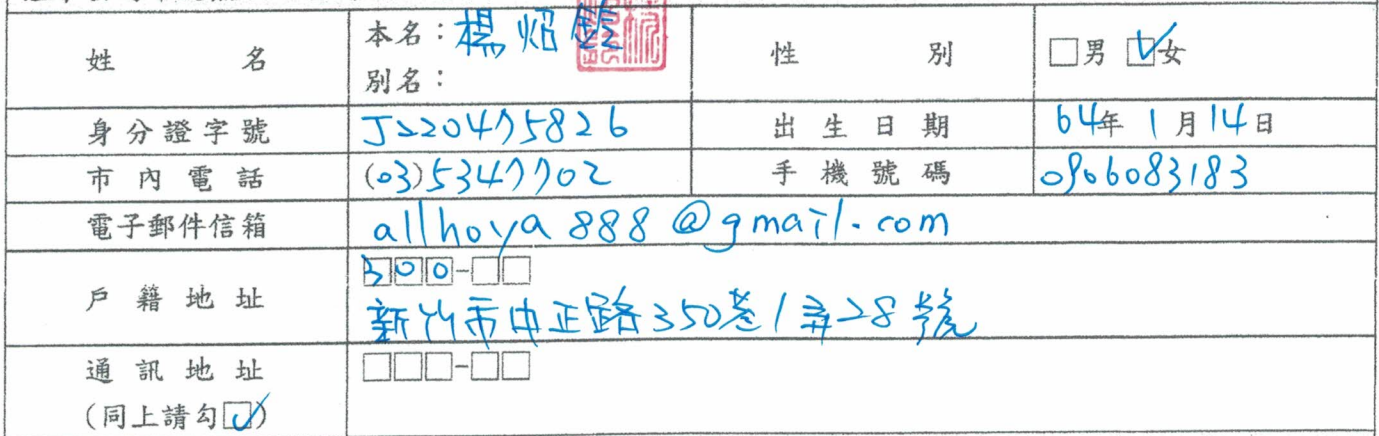 姓名 本名：楊焰鈴 性別 □男 ☑女
別名：
身分證字號 J220475826 出生日期 64年1月14日
市內電話 (03)5347702 手機號碼 0906083183
電子郵件信箱 allhoya888@gmail.com
戶籍地址 300-□□
新竹市中正路350巷1弄28號
通訊地址 □□□-□□
(同上請勾☑)